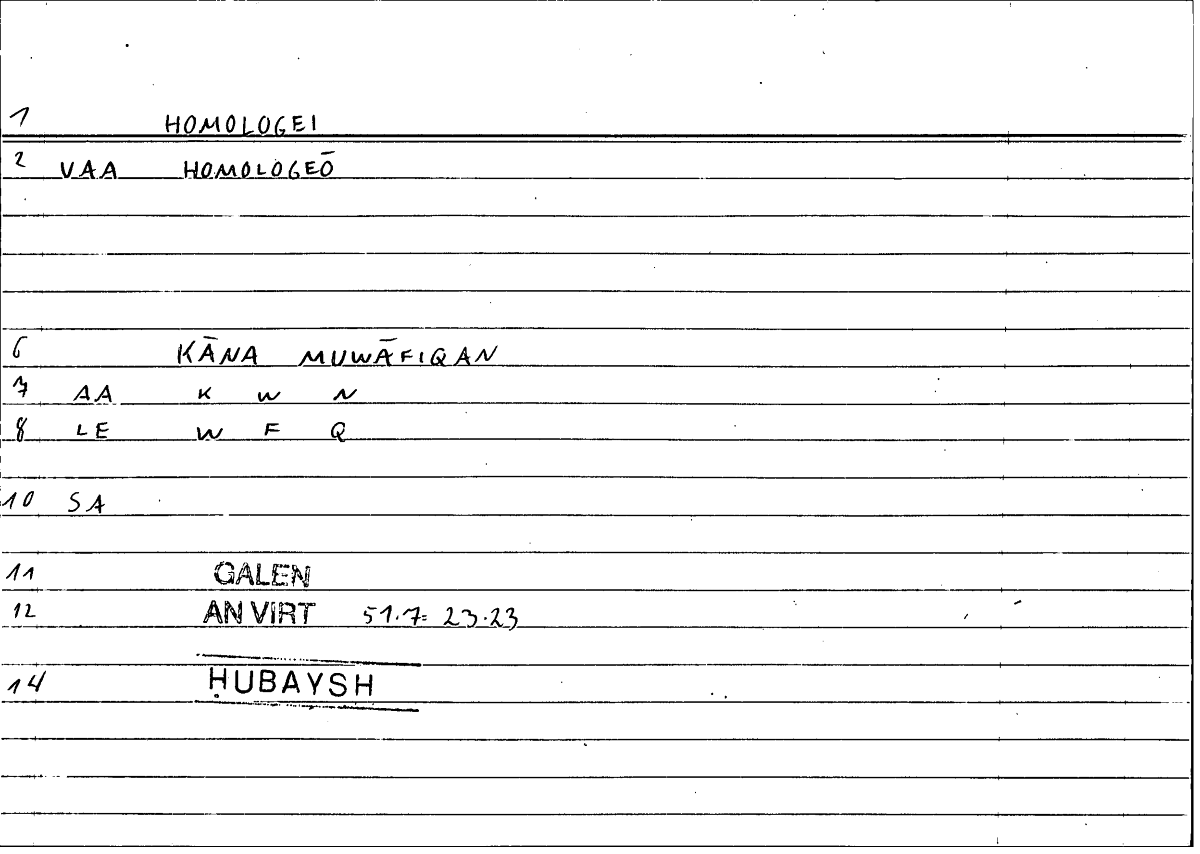 1 HOMOLOGEI
2 VAA HOMOLOGEŌ
6 KĀNA MUWĀFIQAN
7 AA K W N
8 LE W F Q
10 SA
11 GALEN
12 AN VIRT 51.7= 23.23
14 ḤUBAYSH